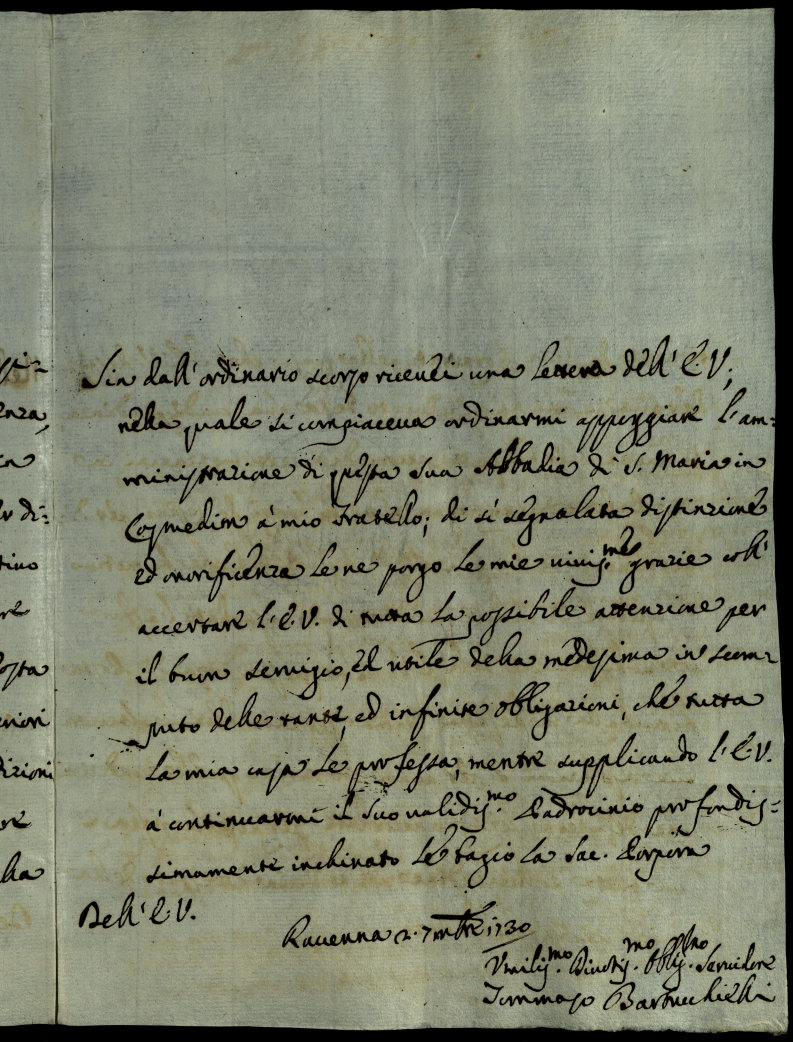 Sin dall' ordinario scorso ricevei una lettera dell' E. V.,
nella quale si compiaceva ordinarmi appoggiare l' am=
ministrazione di questa sua Abbadia di S. Maria in
Cosmedin à mio Fratello; di sì segnalata distinzione
ed onorificenza le ne porgo le mie vivis.me grazie coll'
accertare l' E. V. di tutta la possibile attenzione per
il buon servigio, ed utile della medesima in scom=
puto delle tante, ed infinite obbligazioni, che tutta
la mia casa le professa, mentre supplicando l' E. V.
à continuarmi il suo validis.mo Padrocinio profondis=
simamente inchinato le bagio la Sac. Porpora
Dell' E. V.
Ravenna 2. 7mbre 1730
Umilis.mo Divotis.mo Obblig.mo Servidore
Tommaso
ssi=
enza,
in
er di=
tivo
re
osta
eriori
dizioni
re
lla